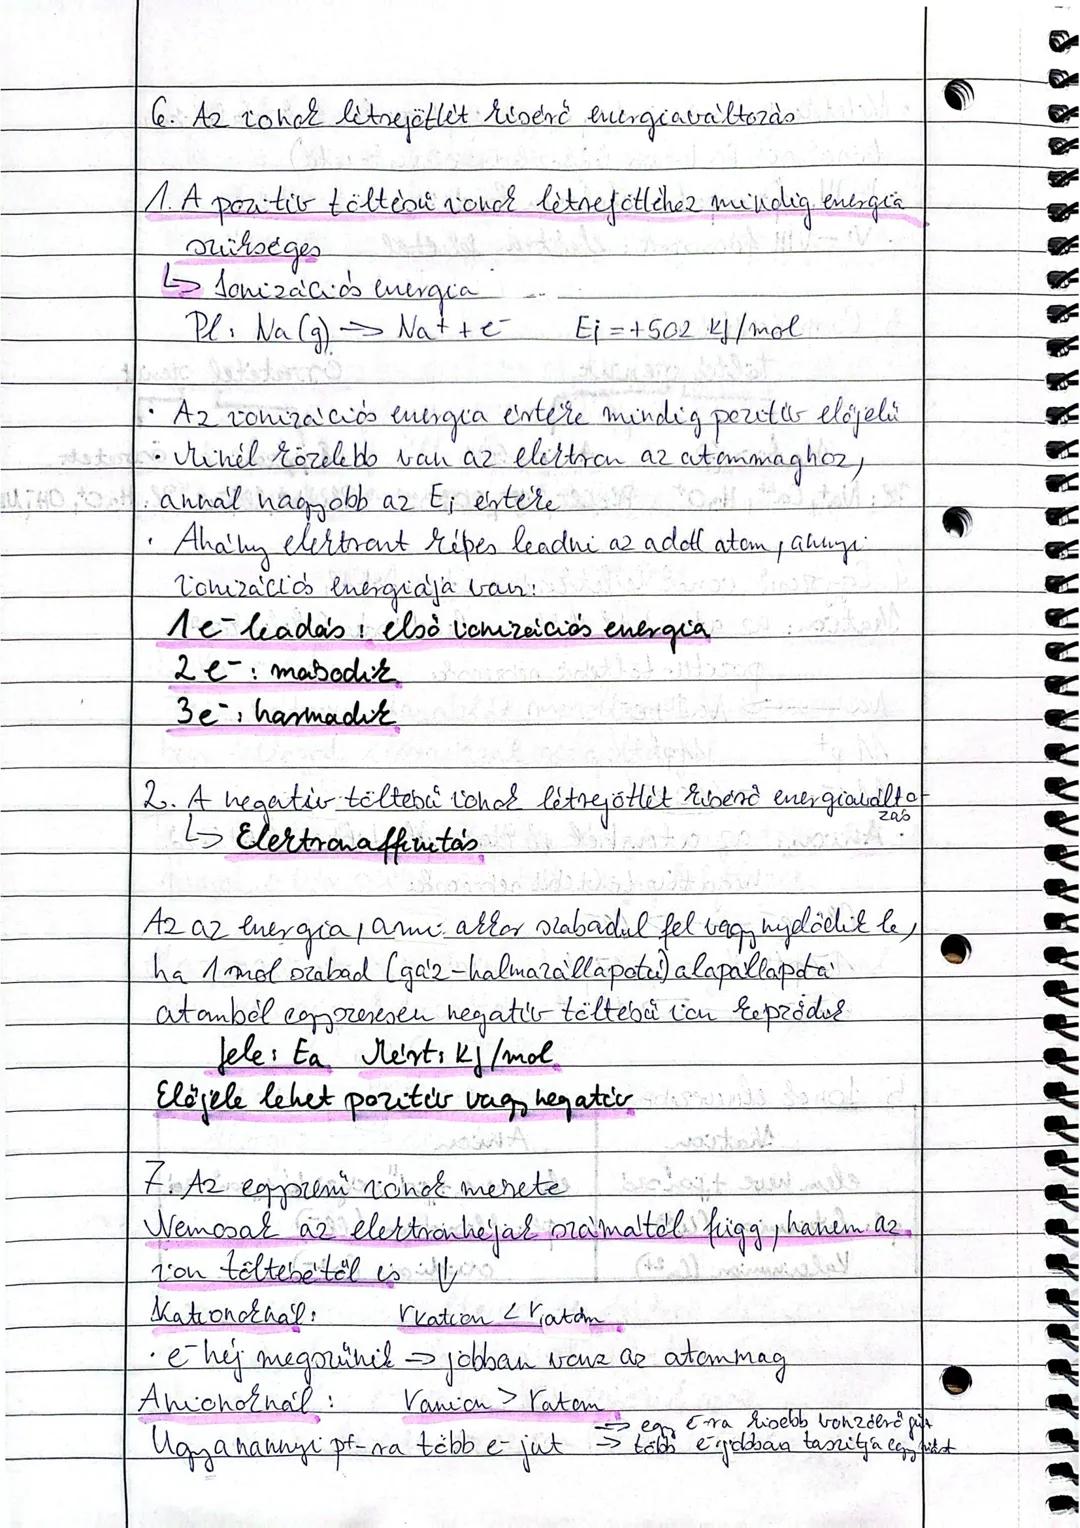 6. Az ionok létrejöttét kisérő energiaváltozás
1. A pozitiv töltésű ionok létrejöttéhez mindig energia
szükséges
↳ Ionizációs energia
Pl: Na(g) → Na⁺ + e⁻ Ei = +502 kJ/mol
· Az ionizációs energia értéke mindig pozitív előjelű
· Minél közelebb van az elektron az atommaghoz,
annál nagyobb az Ei értéke
· Ahány elektront képes leadni az adott atom, annyi
ionizációs energiája van:
1 e⁻ leadás: első ionizációs energia
2 e⁻: második
3 e⁻: harmadik
2. A negatív töltésű ionok létrejöttét kisérő energiaválto
zás
↳ Elektronaffinitás
Az az energia, ami akkor szabadul fel vagy nyelődik le,
ha 1 mol szabad (gáz-halmazállapotú) alapállapotú
atomból egyszeresen negatív töltésű ion képződik
Jele: Ea Mért: kJ/mol
Előjele lehet pozitív vagy negatív
7. Az egyszerű ionok mérete
Nemcsak az elektronhéjak számától függ, hanem az
ion töltésétől is ⇓
Kationoknál: rkation < ratom
· e⁻héj megszűnik → jobban vonz az atommag
Anionoknál: ranion > ratom
→ egy e⁻ra kisebb vonzóerő jut
Ugyanannyi p⁺-ra több e⁻ jut → több e⁻ jobban taszítja egymást